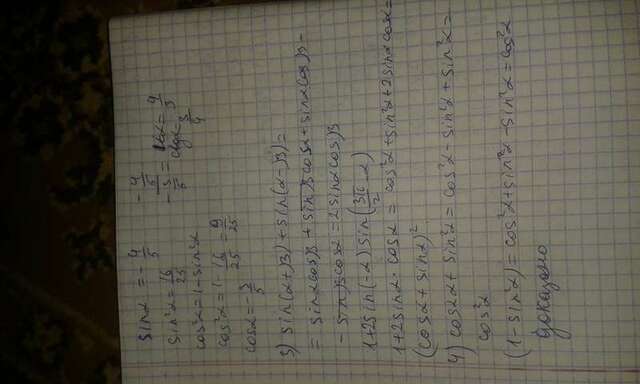 sinα = -4/5
sin²α = 16/25
cos²α = 1 - sin²α
cos²α = 1 - 16/25 = 9/25
cosα = -3/5
-4/5 / -3/5 = tgα = 4/3
ctgα 3/4
3) sin(α+β) + sin(α-β) =
= sinαcosβ + sinβcosα + sinαcosβ -
- sinβcosα = 2sinαcosβ
1+2sin(-α) sin(3π/2 - α)
1+2sinα·cosα = cos²α + sin²α + 2sinαcosα =
(cosα + sinα)²
4) cos2α + sin²α = cos²α - sin²α + sin²α =
cos²α
(1 - sin²α) = cos²α + sin²α - sin²α = cos²α
доказано